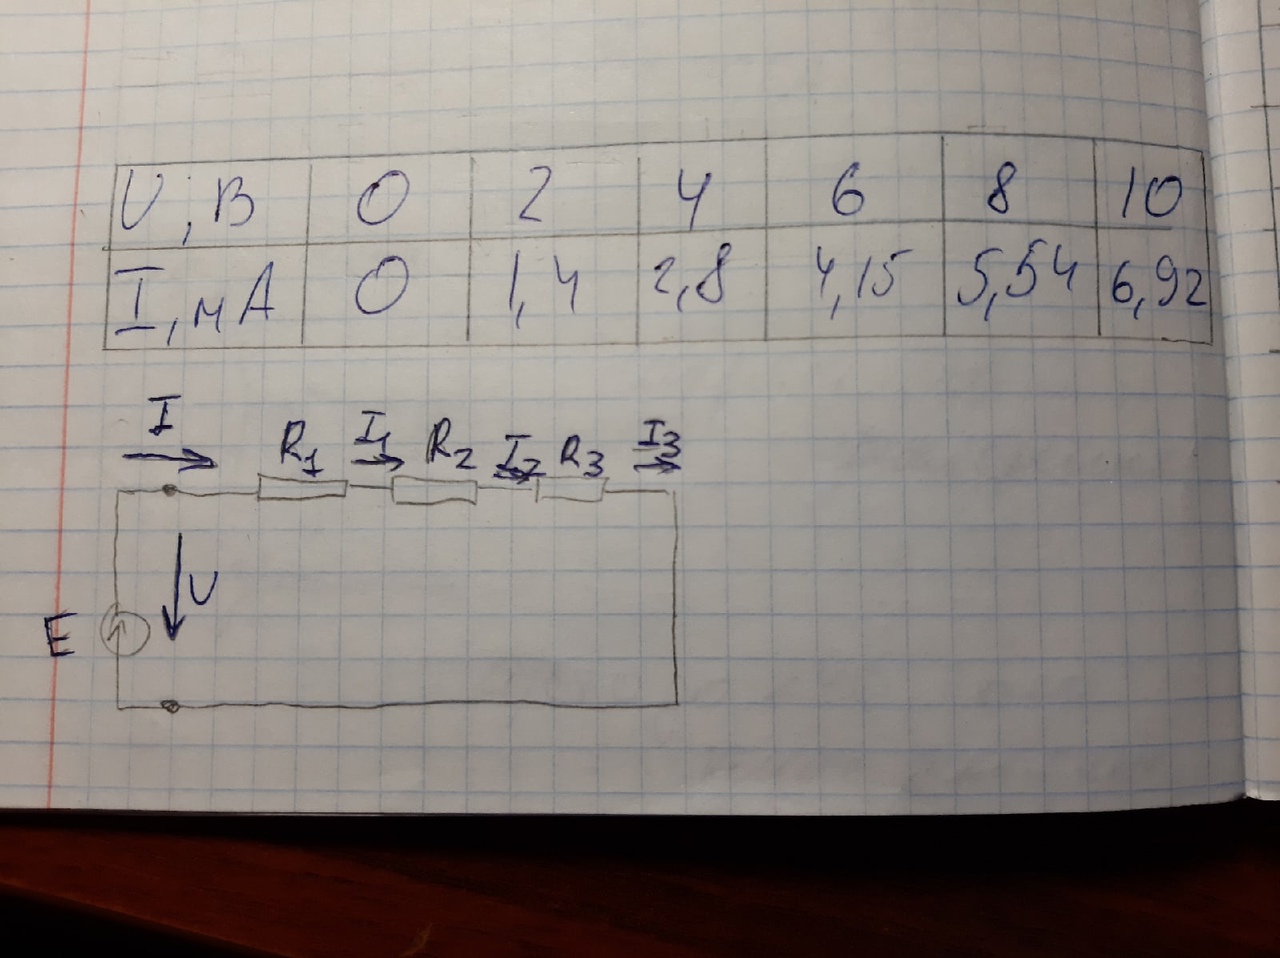 U, В 0 2 4 6 8 10
I, мА 0 1,4 2,8 4,15 5,54 6,92
I R1 I1 R2 I2 R3 I3
U
E